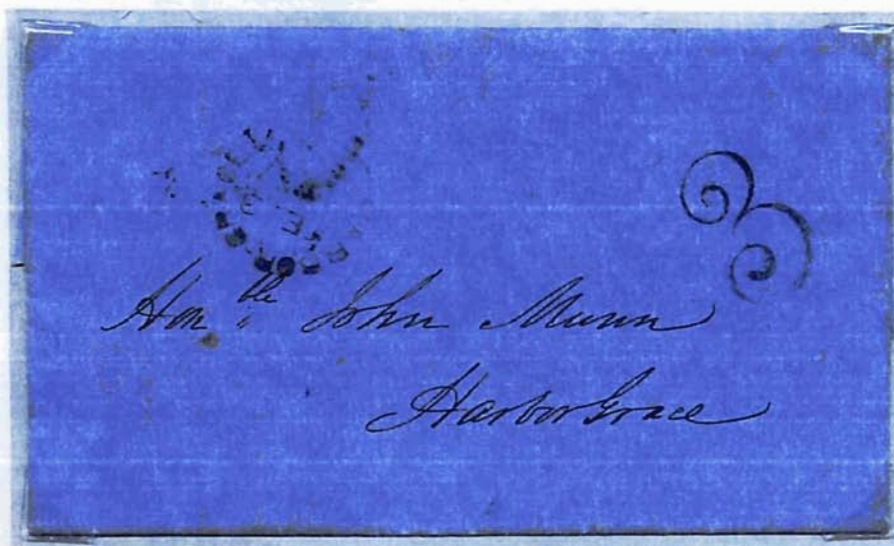 3
Hon ble John Munn
Harbor Grace